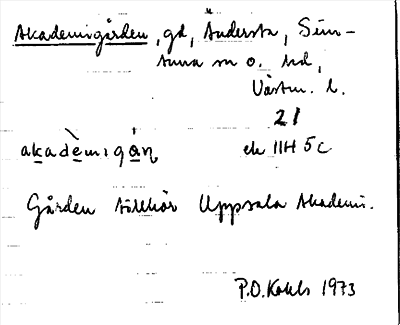 Akademigården, gd, Andersta, Sim-
tuna sn o. hd,
Västm. l.
21
akadèmigá̱ɳ ek 11H 5c
Gården tillhör Uppsala Akademi.
P.O. Kahls 1973